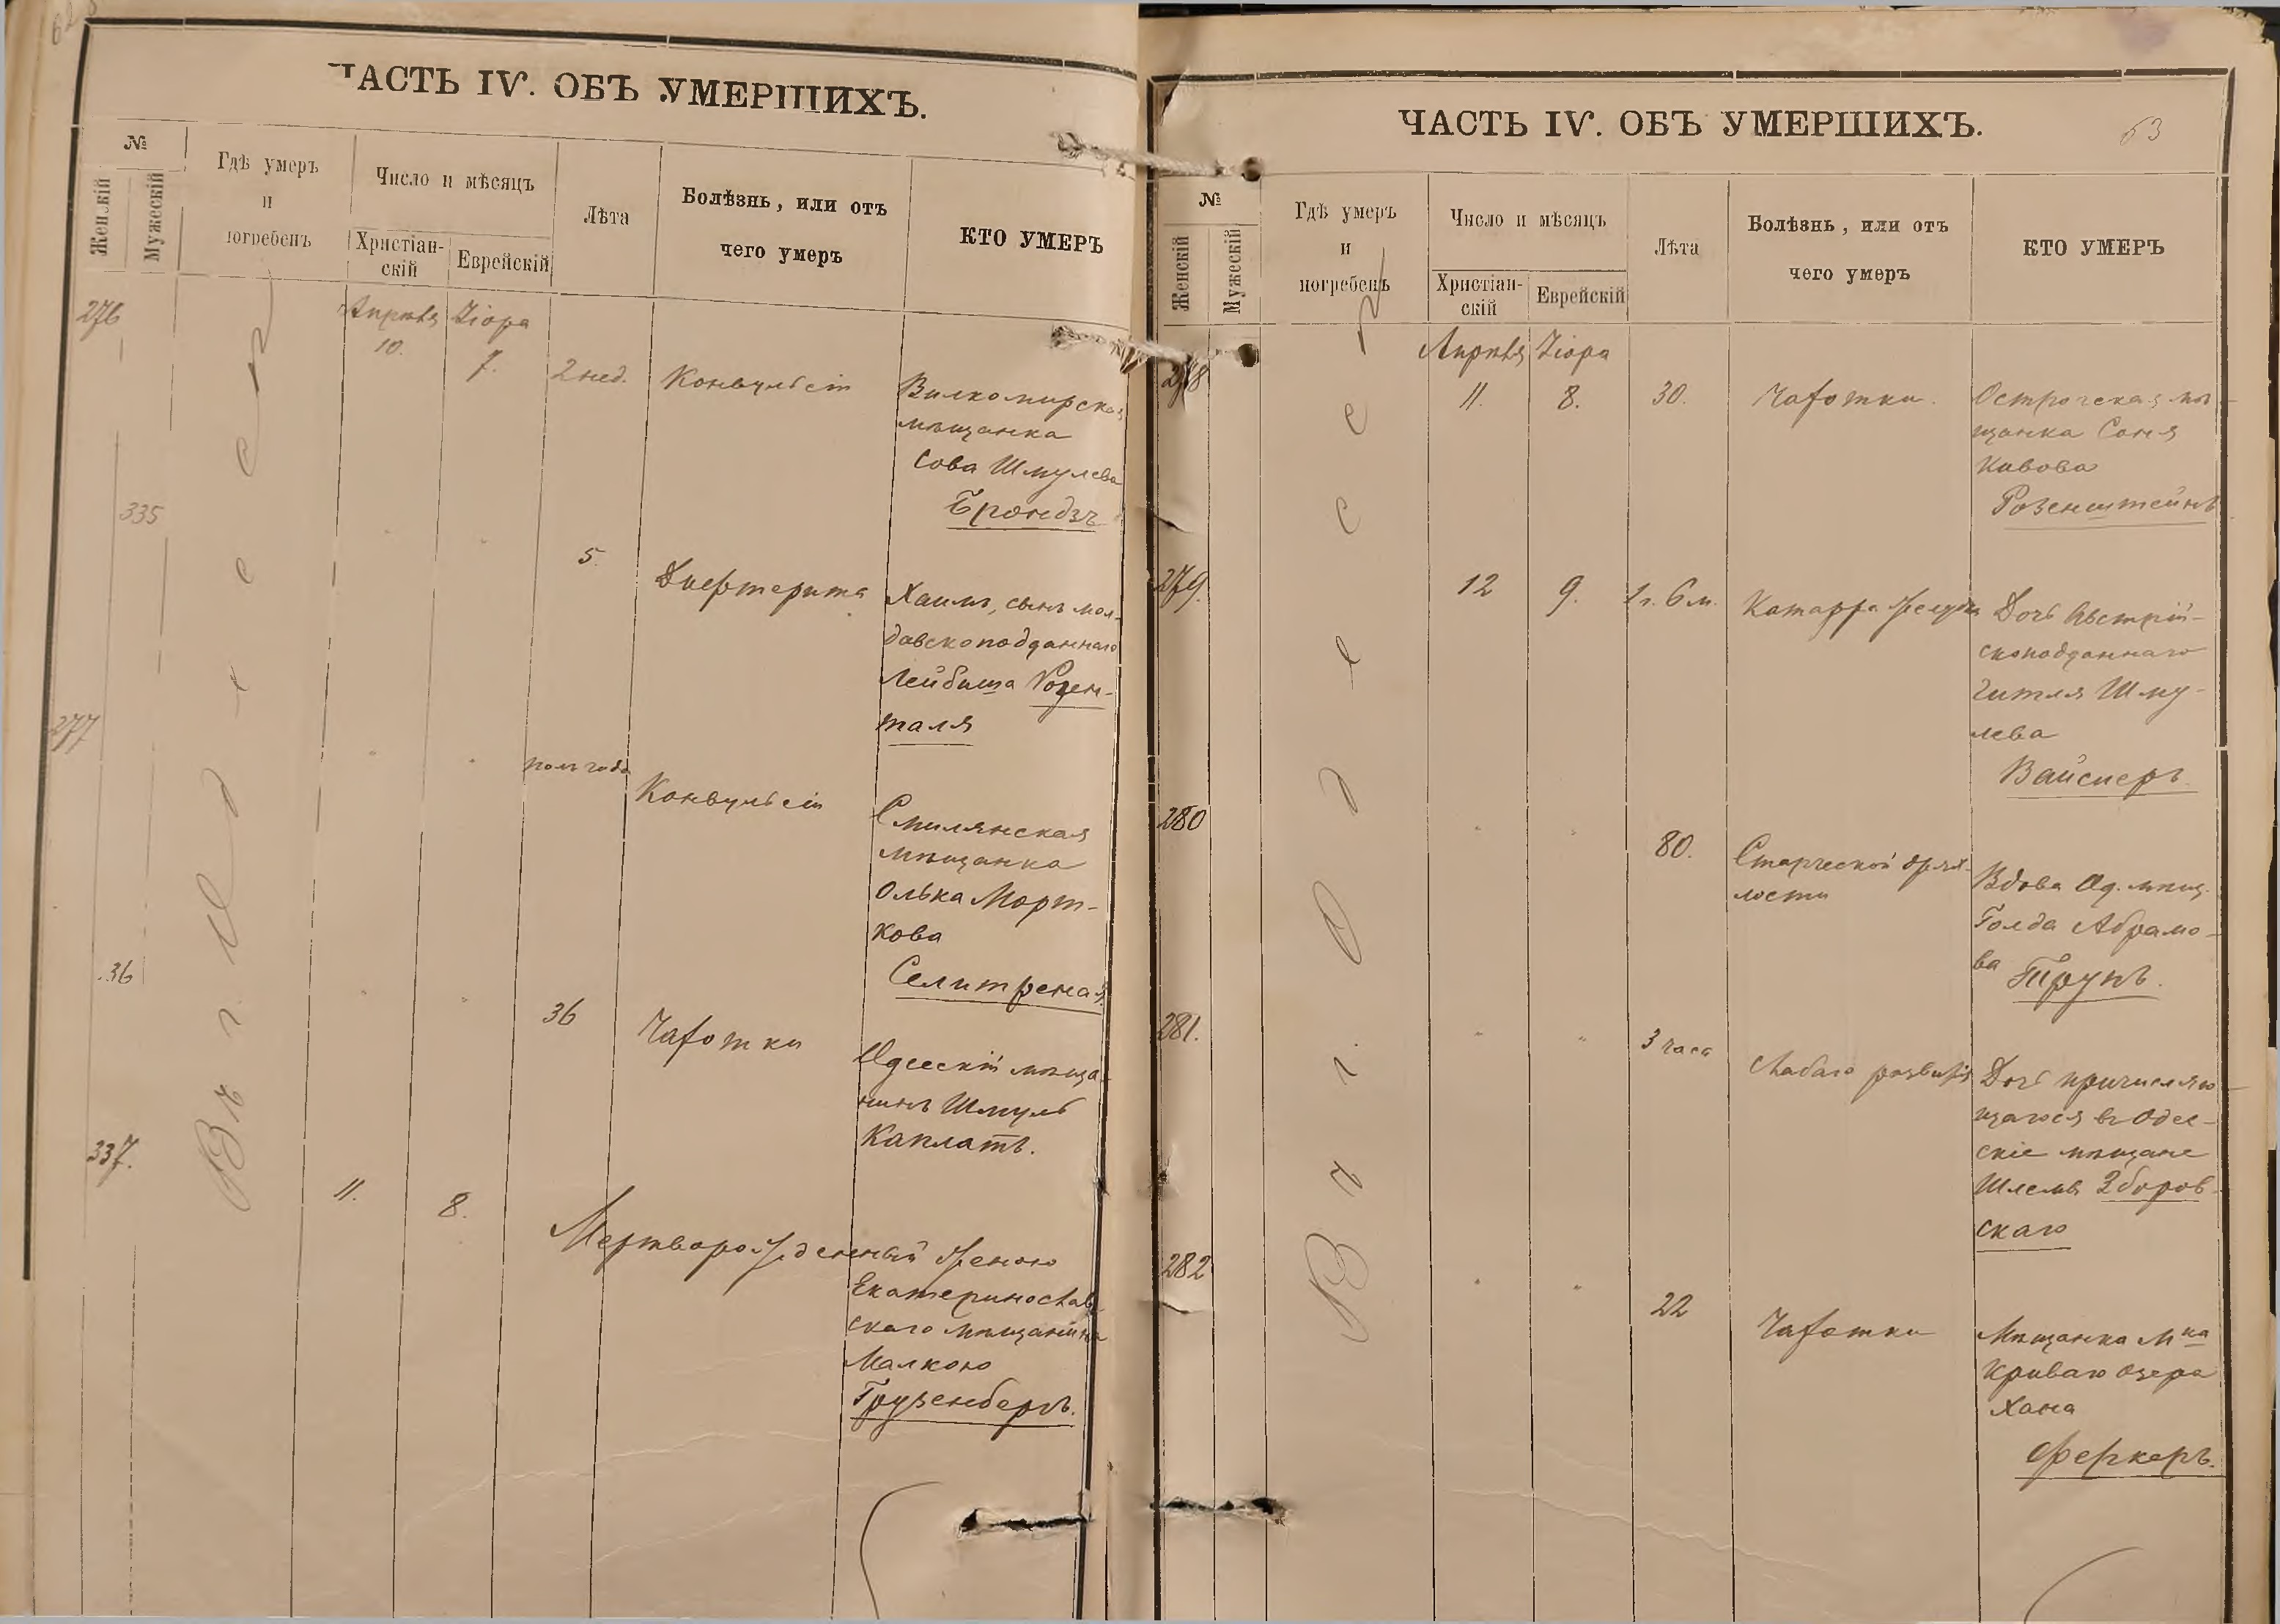 ЧАСТЬ IV. ОБЪ УМЕРШИХЪ.
№
Женскій
Мужескій
Гдѣ умеръ
и
погребенъ
Число и мѣсяцъ
Христіан-
скій
Еврейскій
Лѣта
Болѣзнь, или отъ
чего умеръ
КТО УМЕРЪ
Въ г. Одессѣ
276
Апрѣля
10.
Іюра
7.
2 нед.
Конвульсіи
Вилкомирская
мѣщанка
Сова Шмулева
Брондзъ
335
5.
Дифтерита
Хаимъ, сынъ мол-
давскоподданнаго
Лейбиша Розен-
таля
277
полъ года
Конвульсіи
Смилянская
мѣщанка
Олька Морт-
кова
Селитреная
36
36
Чахотки
Одесскій мѣща-
нинъ Шмуль
Каплатъ.
337.
11.
8.
Мертворожденный женою
Екатеринослав-
скаго мѣщанина
Малкою
Грузенбергъ.
ЧАСТЬ IV. ОБЪ УМЕРШИХЪ.
63
№
Женскій
Мужескій
Гдѣ умеръ
и
погребенъ
Число и мѣсяцъ
Христіан-
скій
Еврейскій
Лѣта
Болѣзнь, или отъ
чего умеръ
КТО УМЕРЪ
Въ г. Одессѣ
278
Апрѣля
11.
Іюра
8.
30.
Чахотки.
Острогская мѣ-
щанка Соня
Кивова
Розенштейнъ
279.
12
9.
1 г. 6 м.
Катарра желудка
Дочь Австрій-
скоподданнаго
Гителя Шму-
лева
Вайснеръ.
280
80.
Старческой дрях-
лости
Вдова Од. мѣщ.
Голда Абрамо-
ва Трупъ.
281.
3 часа
Слабаго развитія
Дочь причисляю-
щагося въ Одес-
скіе мѣщане
Шлемы Зборов-
скаго
282
22
Чахотки
Мѣщанка М-ка
Криваго Озера
Хана
Феркеръ.